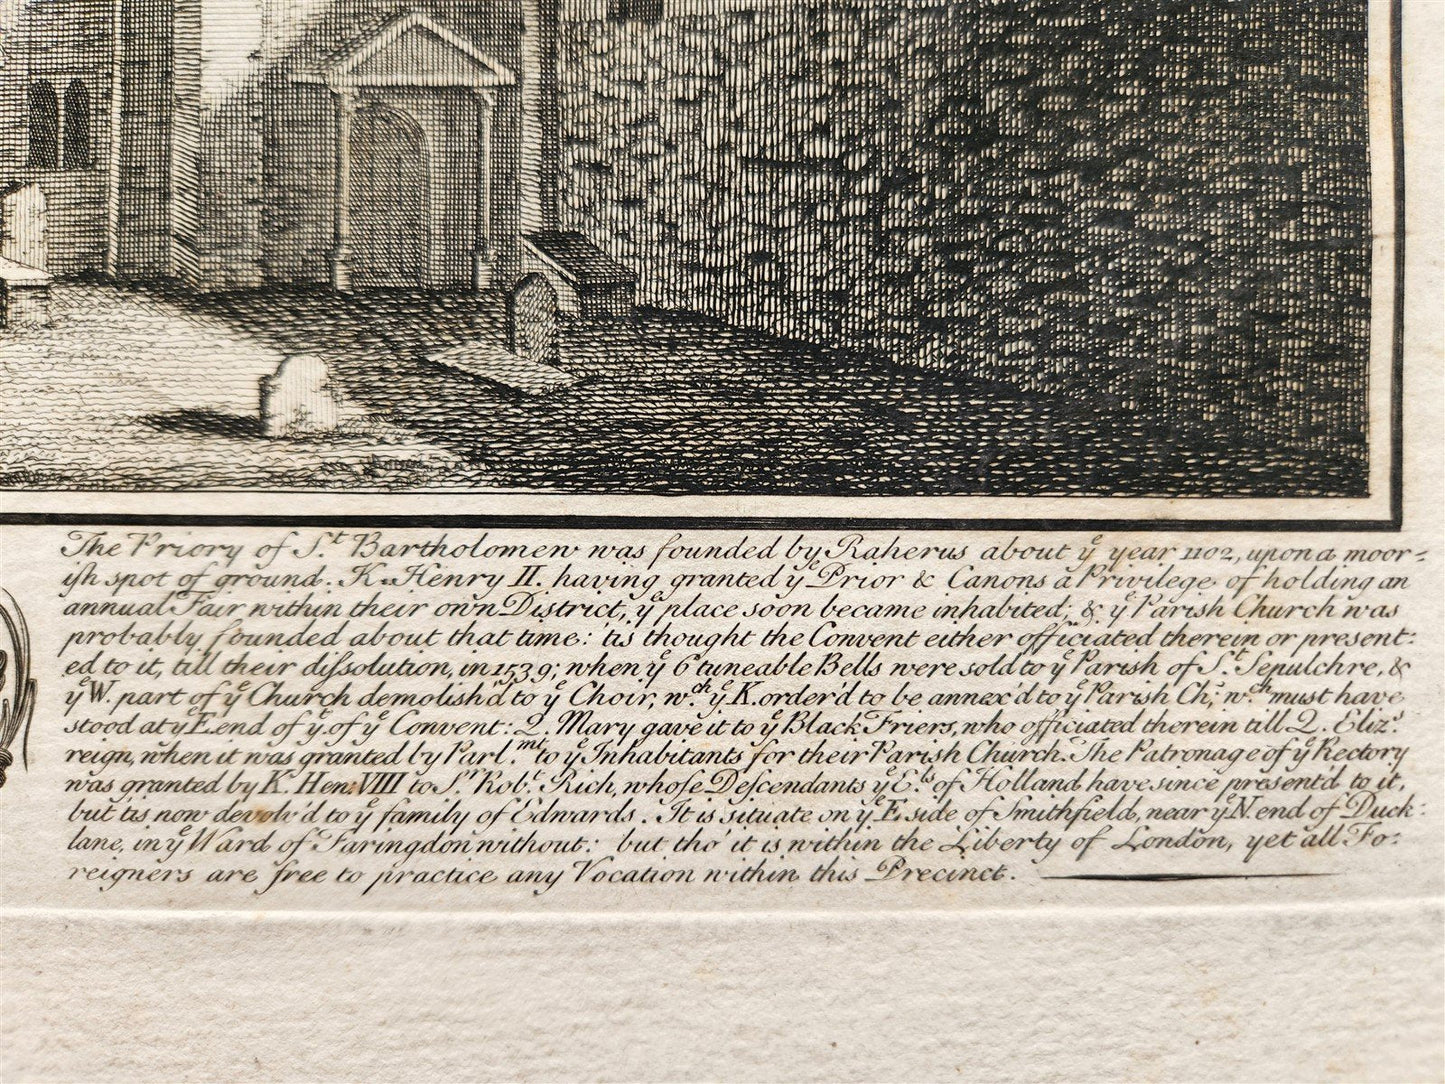 The Priory of S.t Bartholomew was founded by Raherus about yͤ year 1102, upon a moor-
ish spot of ground. K. Henry II. having granted yͤ Prior & Canons a Privilege of holding an
annual Fair within their own District, yͤ place soon became inhabited; & yͤ Parish Church was
probably founded about that time: 'tis thought the Convent either officiated therein or present:
ed to it, till their dissolution, in 1539; when yͤ 6 tuneable Bells were sold to yͤ Parish of S.t Sepulchre, &
yͤ W. part of yͤ Church demolish'd to yͤ Choir, w.ch yͤ K. order'd to be annex'd to yͤ Parish Ch; w.ch must have
stood at yͤ E. end of y.t of yͤ Convent: Q. Mary gave it to yͤ Black Friers, who officiated therein till Q. Eliz.s
reign, when it was granted by Parl.mt to yͤ Inhabitants for their Parish Church. The Patronage of yͤ Rectory
was granted by K. Hen: VIII to S.r Rob.t Rich, whose Descendants yͤ E.ls of Holland have since presentd to it,
but tis now devolv'd to yͤ family of Edwards. It is situate on yͤ E. side of Smithfield, near yͤ N. end of Duck:
lane, in yͤ Ward of Faringdon without: but tho' it is within the Liberty of London, yet all Fo-
reigners are free to practice any Vocation within this Precinct.